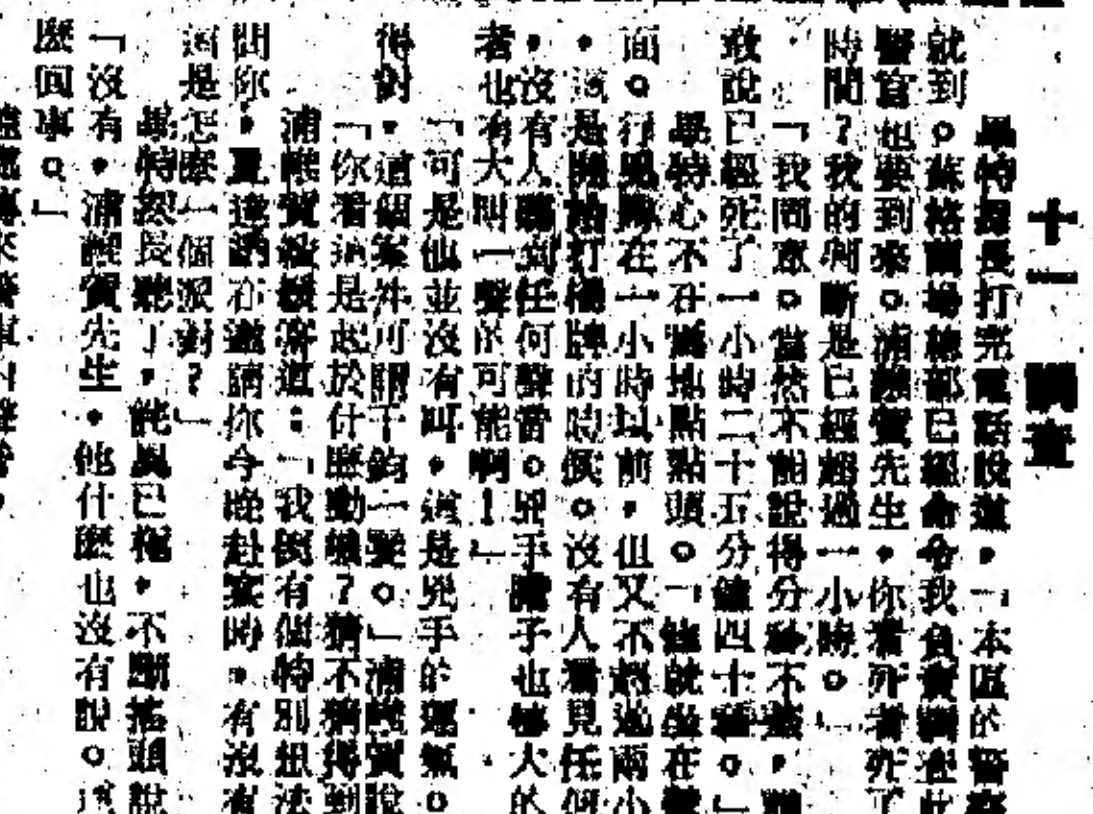 十一 調查
畢特探長打完電話說道，「本區的警察
就到。蘇格蘭場總部已經命令我負責調查此
醫官也要到來。浦醒賀先生，你看死者死了
時間？我的判斷是已經超過一小時。」
「我同意。當然不能說得分秒不差，
敢說已經死了一小時二十五分鐘四十秒。」
畢特心不在焉地點點頭。「他就坐在
面。行兇時在一小時以前，但又不超過兩小
是開始打橋牌的時候。沒有人看見任何
，沒有人聽到任何聲響。兇手膽子也夠大的
者也有大叫一聲的可能啊！」
「可是他並沒有叫，這是兇手的運氣。
得對，這個案件可謂千鈞一髮。」浦醒賀說
「你看這是起於什麼動機？猜不猜得到
浦醒賀緩緩答道：「我倒有個特別想法
問你，夏達納在邀請你今晚赴宴時，有沒有
這是怎麼一個派對？」
畢特探長聽了，詫異已極，不斷搖頭說
「沒有，浦醒賀先生，他什麼也沒有說。這
麼回事。」